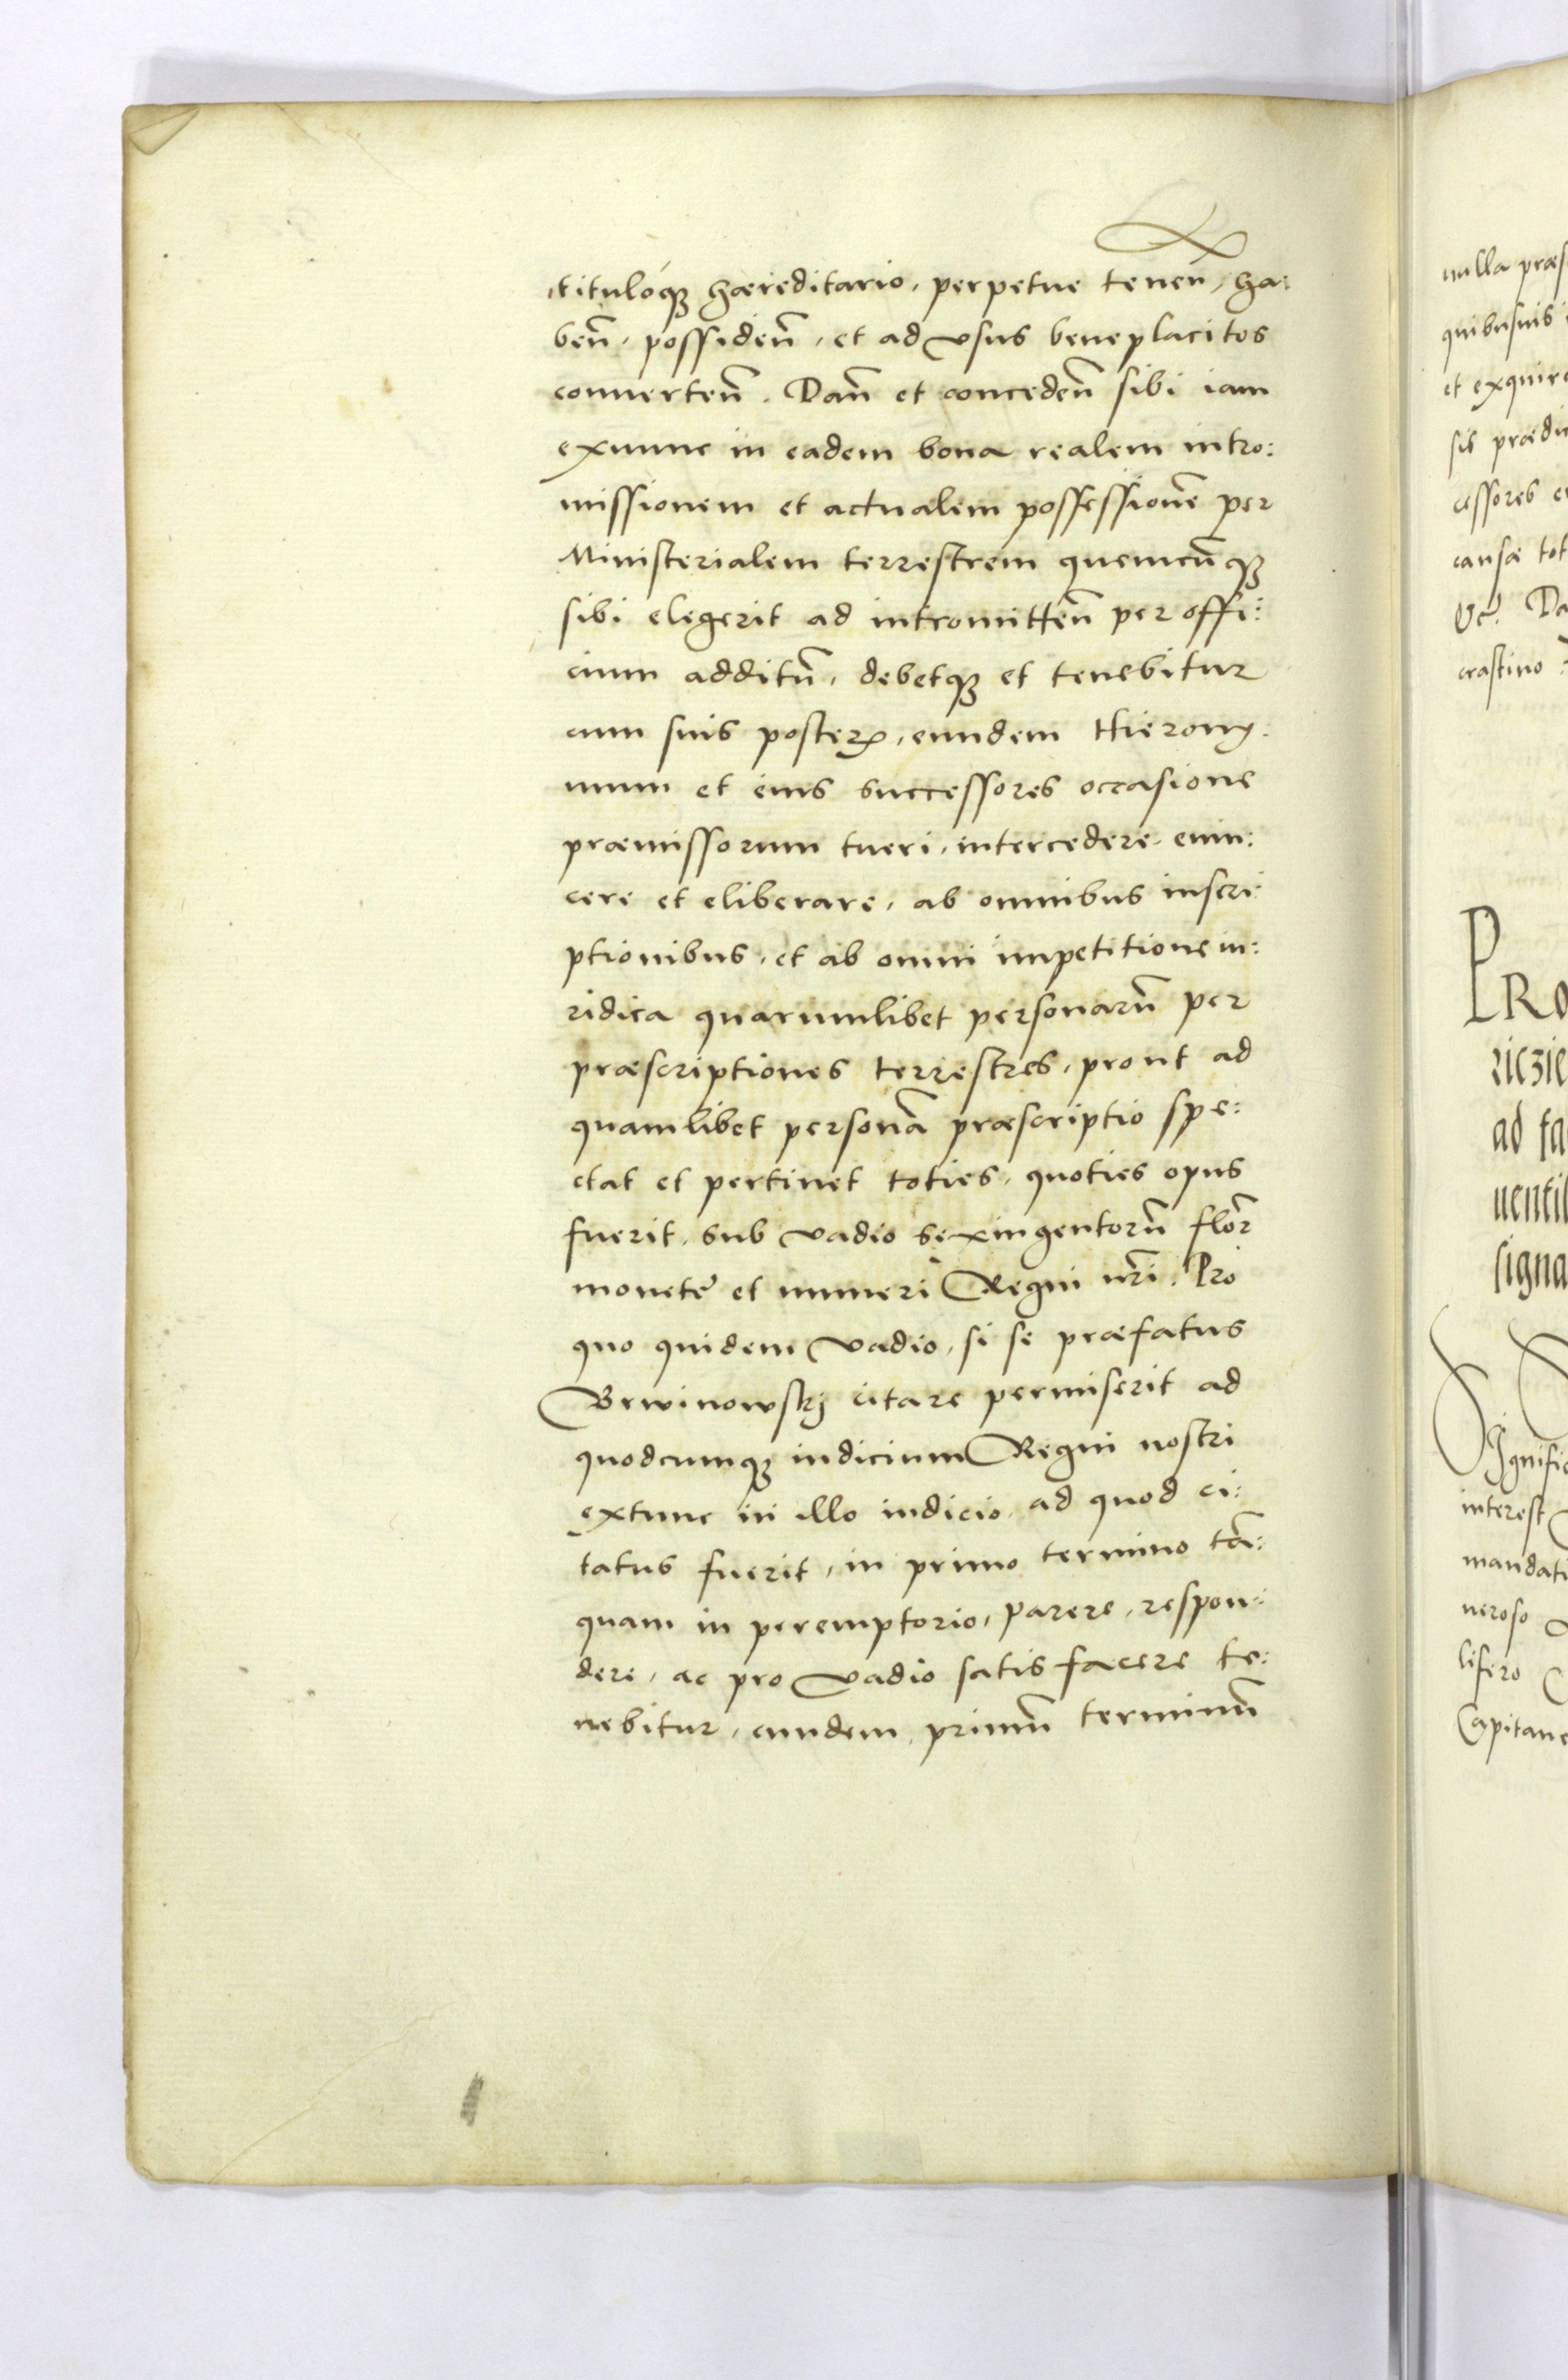 tituloq₃ hæreditario, perpetue teneñ, ha:
beñ, possideñ, et ad vsus beneplacitos
conuerteñ. Dañ et concedeñ sibi iam
exnunc in eadem bona realem intro:
missionem et actualem possessionē per
Ministerialem terrestrem quemcūq₃
sibi elegerit ad intromitteñ per offi:
cium additū, debetq₃ et tenebitur
cum suis posteꝝ, eundem Hierony:
mum et eius successores occasione
præmissorum tueri, intercedere, euin:
cere et eliberare, ab omnibus inscri
ptionibus, et ab omni impetitione iu:
ridica quarumlibet personarū per
præscriptiones terrestres, prout ad
quamlibet personā præscriptio spe:
ctat et pertinet toties, quoties opus
fuerit, sub vadio sexingentorū flor
monete et numeri Regni nri. Pro
quo quidem vadio, si se præfatus
Brwinowskj citare permiserit ad
quodcumq₃ iudicium Regni nostri
extunc in illo iudicio, ad quod ci:
tatus fuerit, in primo termino tā:
quam in peremptorio, parere, respon:
dere, ac pro vadio satis facere te:
nebitur, eundem primū terminū
nulla præs
quibusuis
et exquire
sis prædi
cessores
causæ tot
Da
crastino
PRO
ad fa
uenti
signa
interest
mandati
neroso
lifero
Capitane